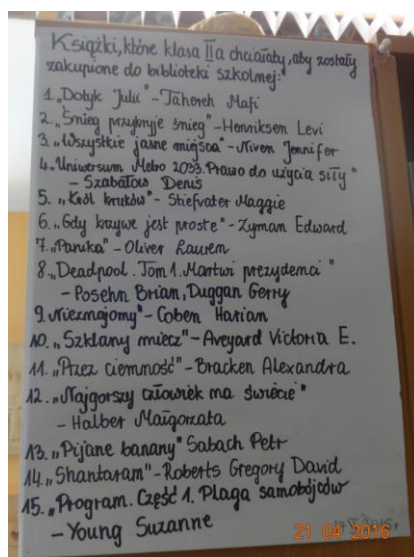 Książki, które klasa IIa chciałaby, aby zostały
zakupione do biblioteki szkolnej:
1. „Dotyk Julii" - Tahereh Mafi
2. „Śnieg przykryje śnieg" - Henriksen Levi
3. „Wszystkie jasne miejsca" - Niven Jennifer
4. „Uniwersum Metro 2033. Prawo do użycia siły"
- Szabałow Denis
5. „Król kruków" - Stiefvater Maggie
6. „Gdy krzywe jest proste" - Zyman Edward
7. „Panika" - Oliver Lauren
8. „Deadpool. Tom 1. Martwi prezydenci"
- Posehn Brian, Duggan Gerry
9. „Nieznajomy" - Coben Harlan
10. „Szklany miecz" - Aveyard Victoria E.
11. „Przez ciemność" - Bracken Alexandra
12. „Najgorszy człowiek na świecie"
- Halber Małgorzata
13. „Pijane banany" Sabach Petr
14. „Shantaram" - Roberts Gregory David
15. „Program. Część 1. Plaga samobójców
- Young Suzanne
21 04 2016